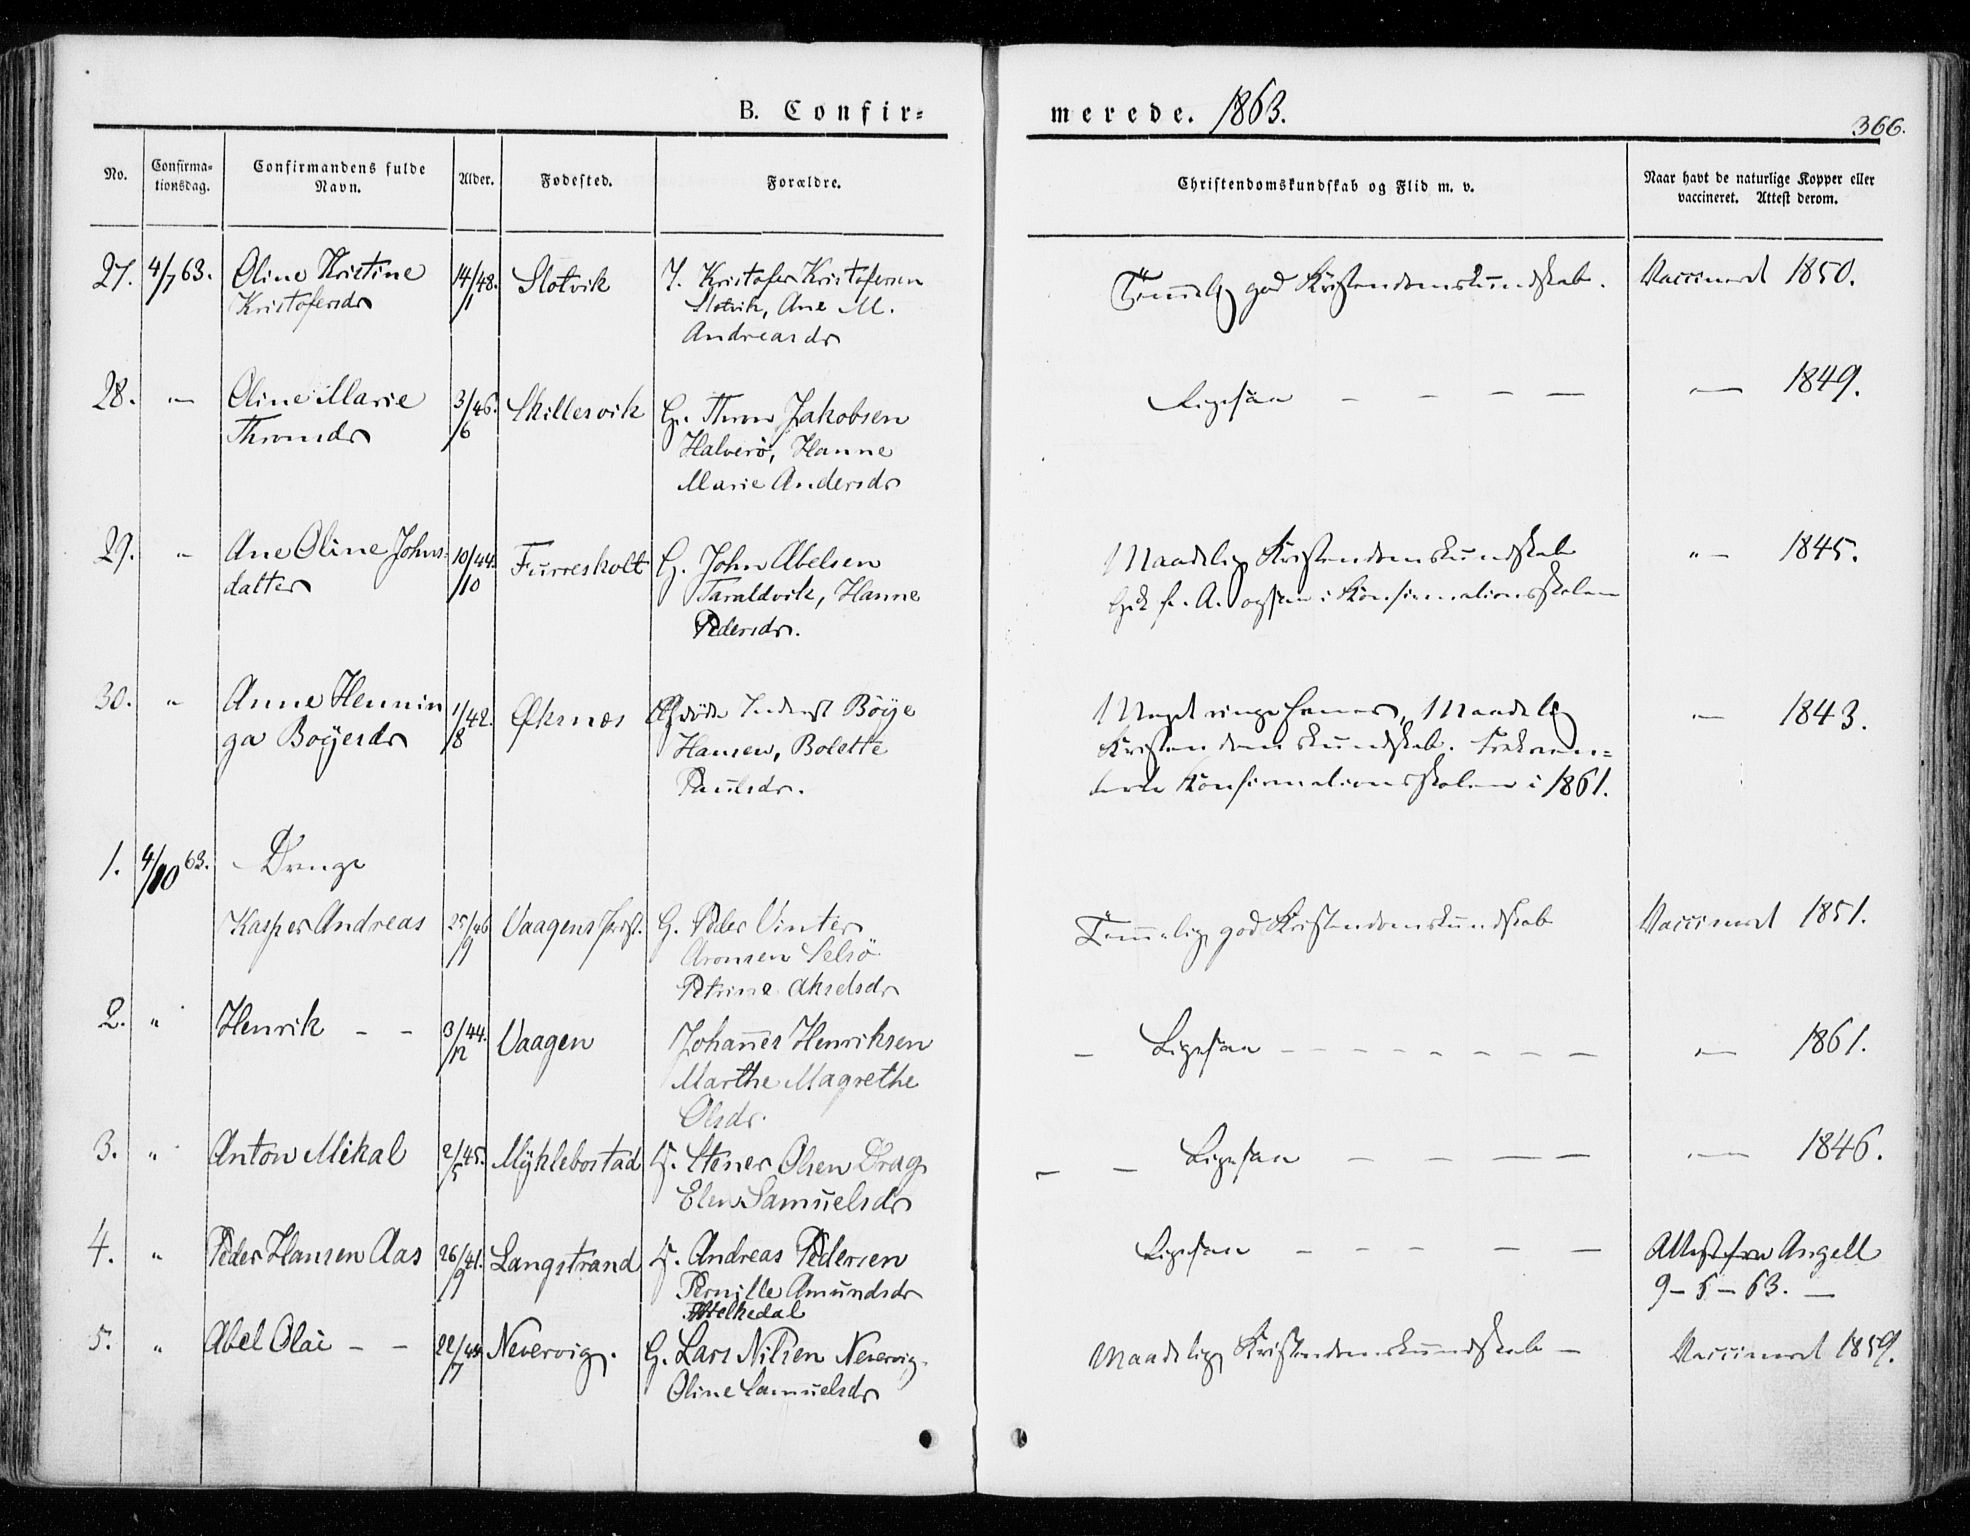 B. Confir=
merede. 1863.
366.
No.
Confirma=
tionsdag.
Confirmandens fulde
Navn.
Alder.
Fødested.
Forældre.
Christendomskundskab og Flid m. v.
Naar havt de naturlige Kopper eller
vaccineret. Attest derom.
27. 4/7 63. Oline Kristine 14/48. Slotvik J. Kristofer Kristofersen
/1 Kristofersdr Slotvik, Ane M.
Andreasdr
Temmelig god Kristendomskundskab. Vaccineret 1850.
28. — Oline Marie 3/46. Skillesvik G. Thron Jakobsen
Thronsdr /6 Halverø, Hanne
Marie Andersdr
Ligesaa — — — — — 1849.
29. " Ane Oline Johns= 10/44. Furresholt G. John Abelsen
datter /10 Taraldvik, Hanne
Pedersdr.
Maadelig Kristendomskundskab " — 1845.
Gik f. A. ogsaa i Konfirmationsskolen
30. " Anne Hennin 1/42. Øksnes Afdøde Inderst Böye
ga Boyesdr /8 Hansen, Bolette
Paulsdr.
Meget ringe Maadelig — 1843.
Kristendomskundskab.
Konfirmationsskolen i 1861.
1. 4/10 63. Drenge
Kasper Andreas 25/46 Vaagens G. Peder Vinter
/9 Aronsen Selsö
Petrine Akselsdr
Temmelig god Kristendomskundskab Vaccineret 1851.
2. " Henrik — — 3/44. Vaagen Johannes Henriksen
/12 Marthe Magrethe
Olsdr.
— Ligesaa — — — — — — — — — 1861.
3. " Anton Mikal 2/45. Myklebostad Stener Olsen Drag
/5 Elen Samuelsdr
— — Ligesaa — — — — — 1846.
4. " Peder Hansen Aas 26/41. Langstrand Andreas Pedersen
/9 Pernille Amundsdr
Melkedal
Ligesaa — — — — — Attest fra Angell
9–5–63. —
5. " Abel Olai — — 22/44 Nevervig. G. Lars Nilsen Nevervig.
/7 Oline Samuelsdr
Maadelig Kristendomskundskab — Vaccineret 1859.